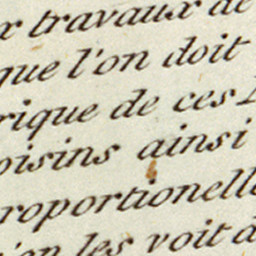 x travaux de
que l'on doit
rique de ces
oisins ainsi
roportionelle
les voit d